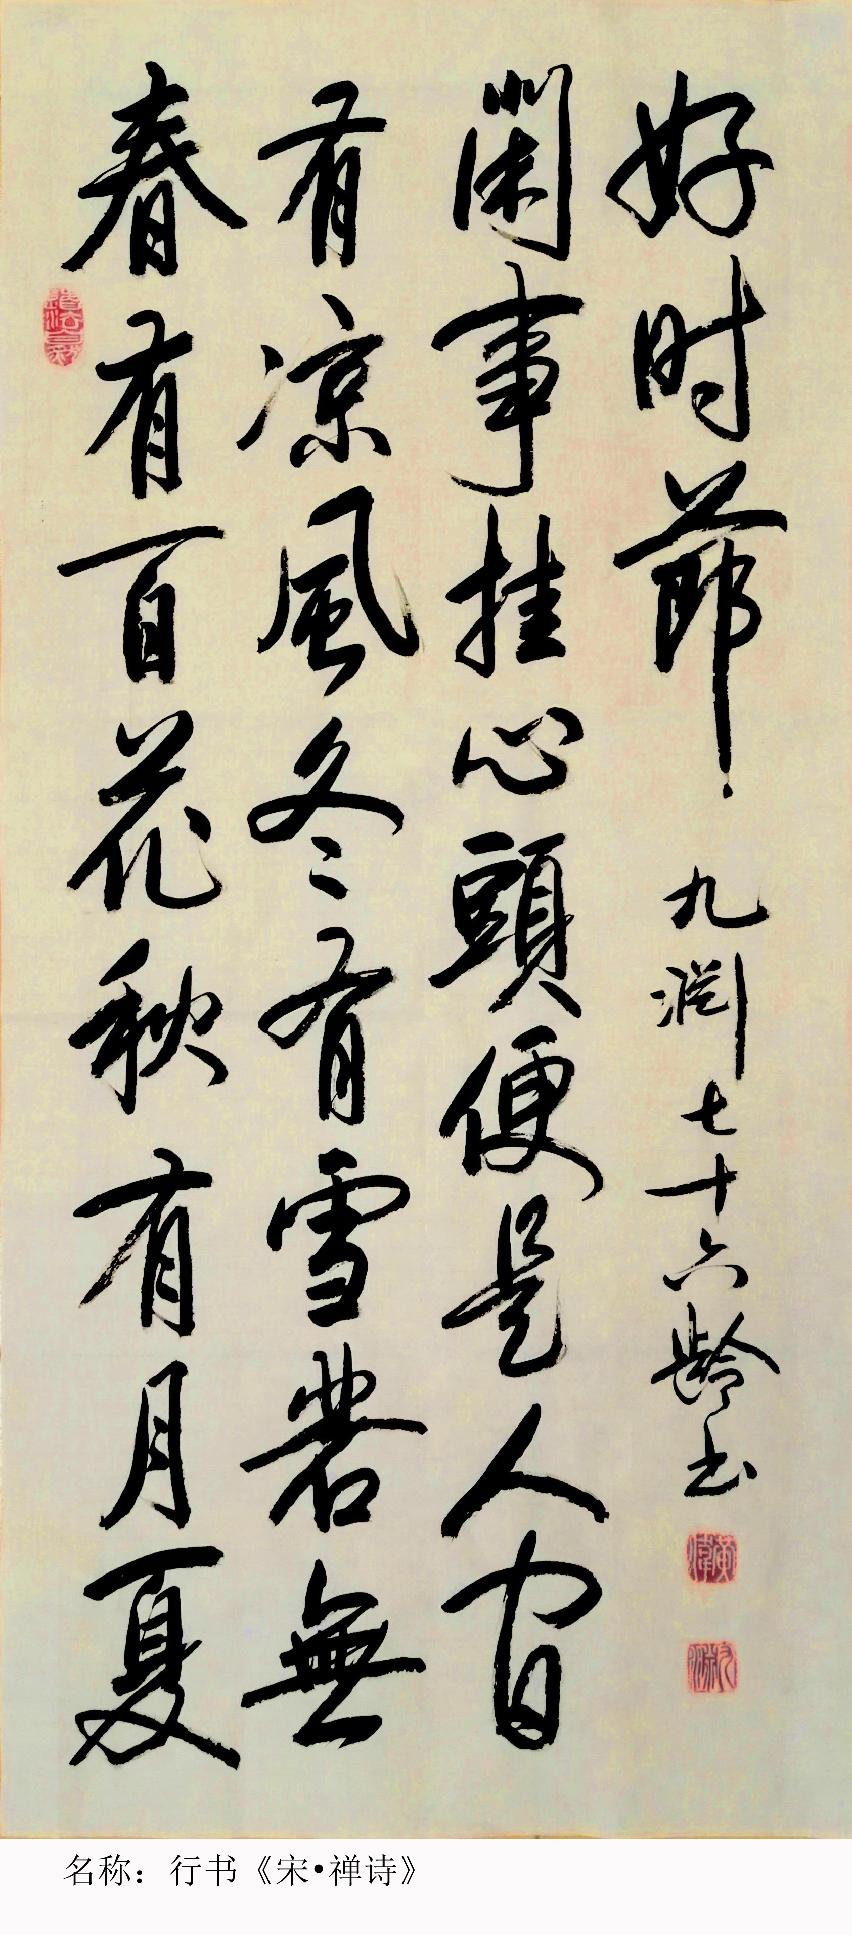 春有百花秋有月夏
有凉風冬有雪若無
閑事挂心頭便是人間
好时節 九渊七十六龄书
名称：行书《宋•禅诗》